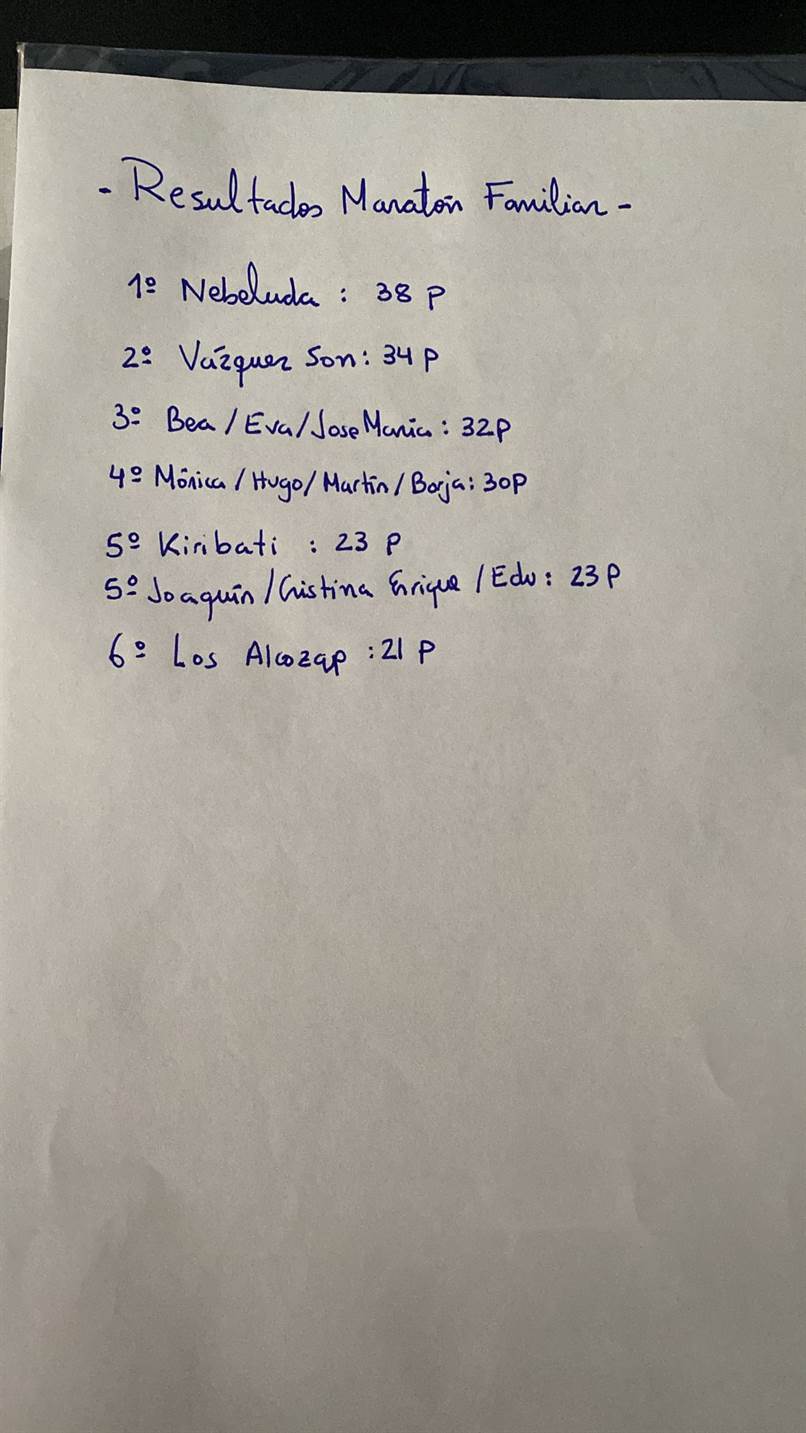 - Resultados Maratón Familiar -
1º Nebeluda : 38 P
2º Vázquez Son : 34 P
3º Bea / Eva / Jose Maria : 32P
4º Mónica / Hugo / Martín / Borja : 30P
5º Kiribati : 23 P
5º Joaquín / Cristina Enrique / Edu : 23 P
6º Los Alcozap : 21 P